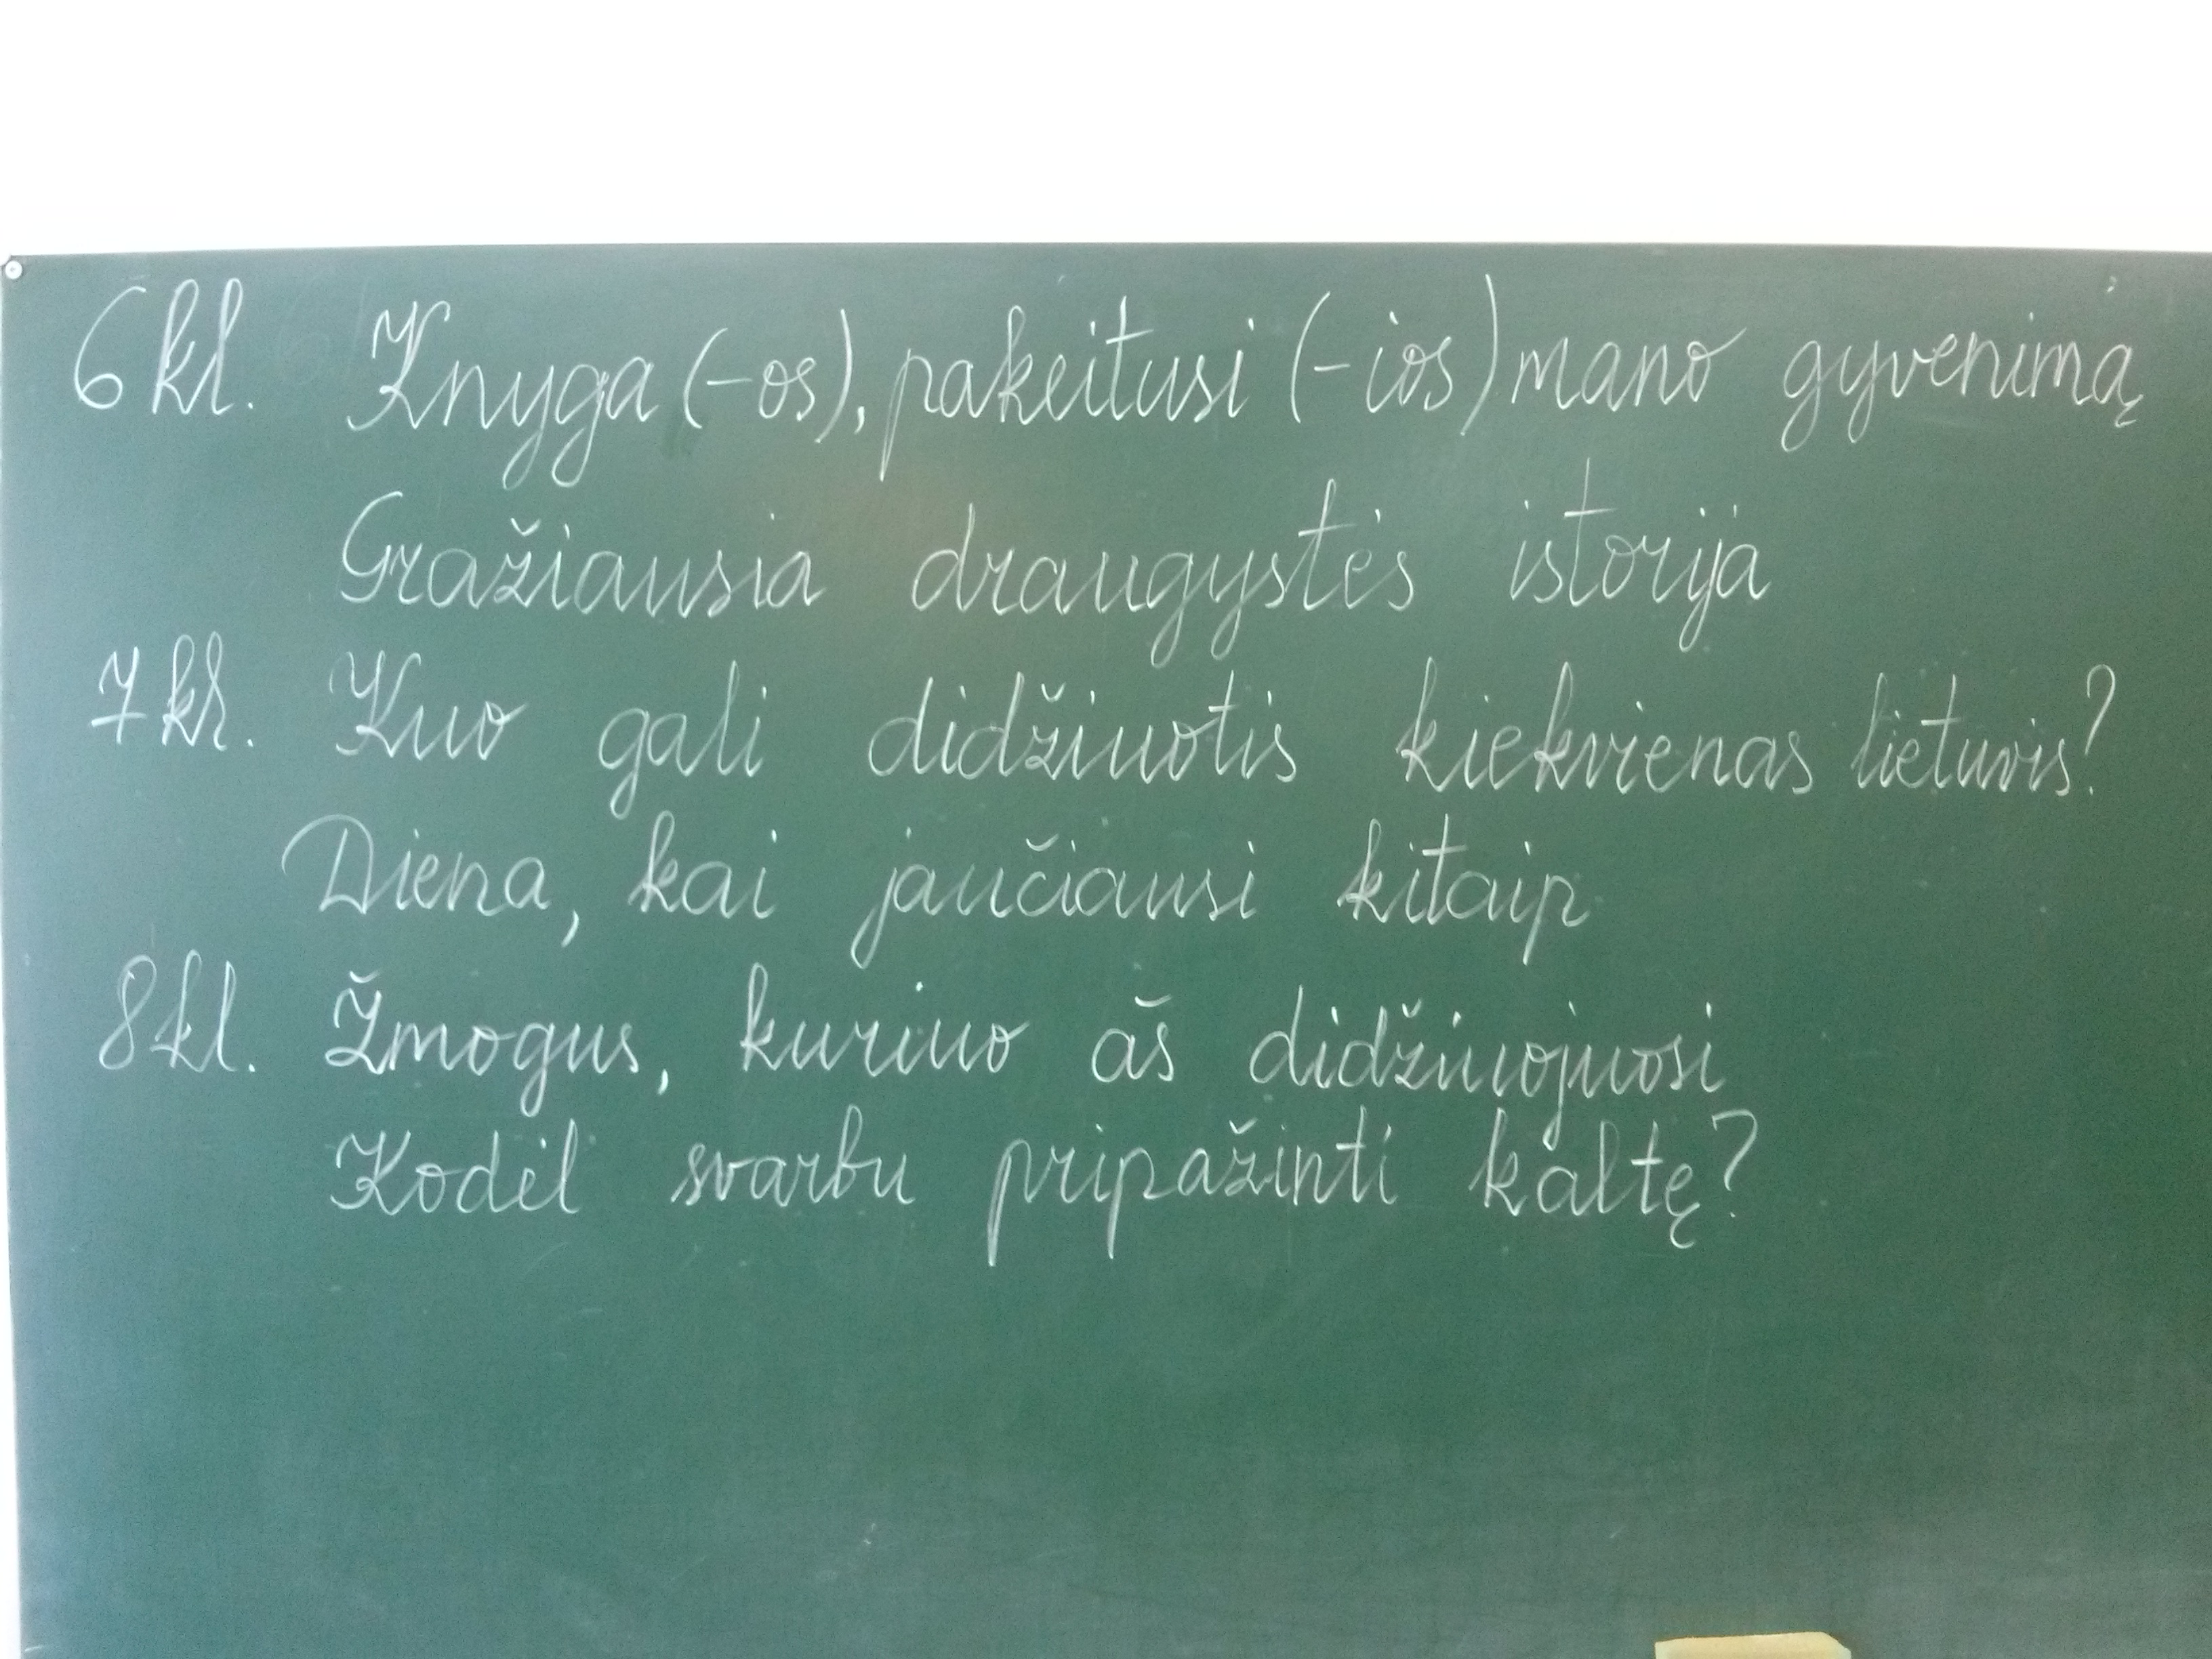 6 kl. Knyga (-os), pakeitusi (-ios) mano gyvenimą
Gražiausia draugystės istorija
7 kl. Kuo gali didžiuotis kiekvienas lietuvis?
Diena, kai jaučiausi kitaip
8 kl. Žmogus, kuriuo aš didžiuojuosi
Kodėl svarbu pripažinti kaltę?